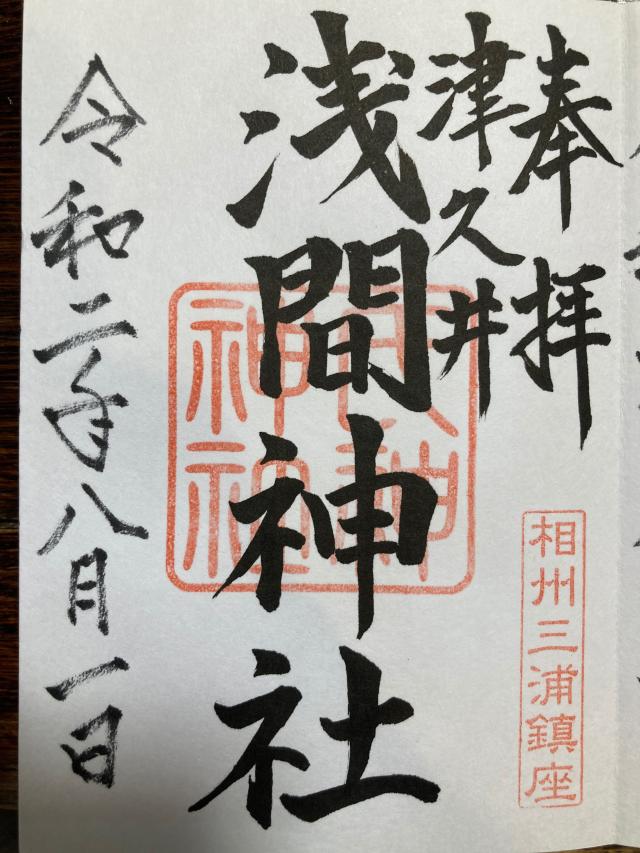 奉拝
津久井
浅間神社
令和二年八月一日
相州三浦鎮座